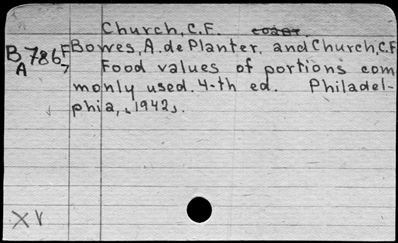 Church, C.F.
B786F Bowes, A. de Planter. and Church, C.F
A7 Food values of portions com
monly used. 4-th ed. Philadel-
phia, 1942.
XV